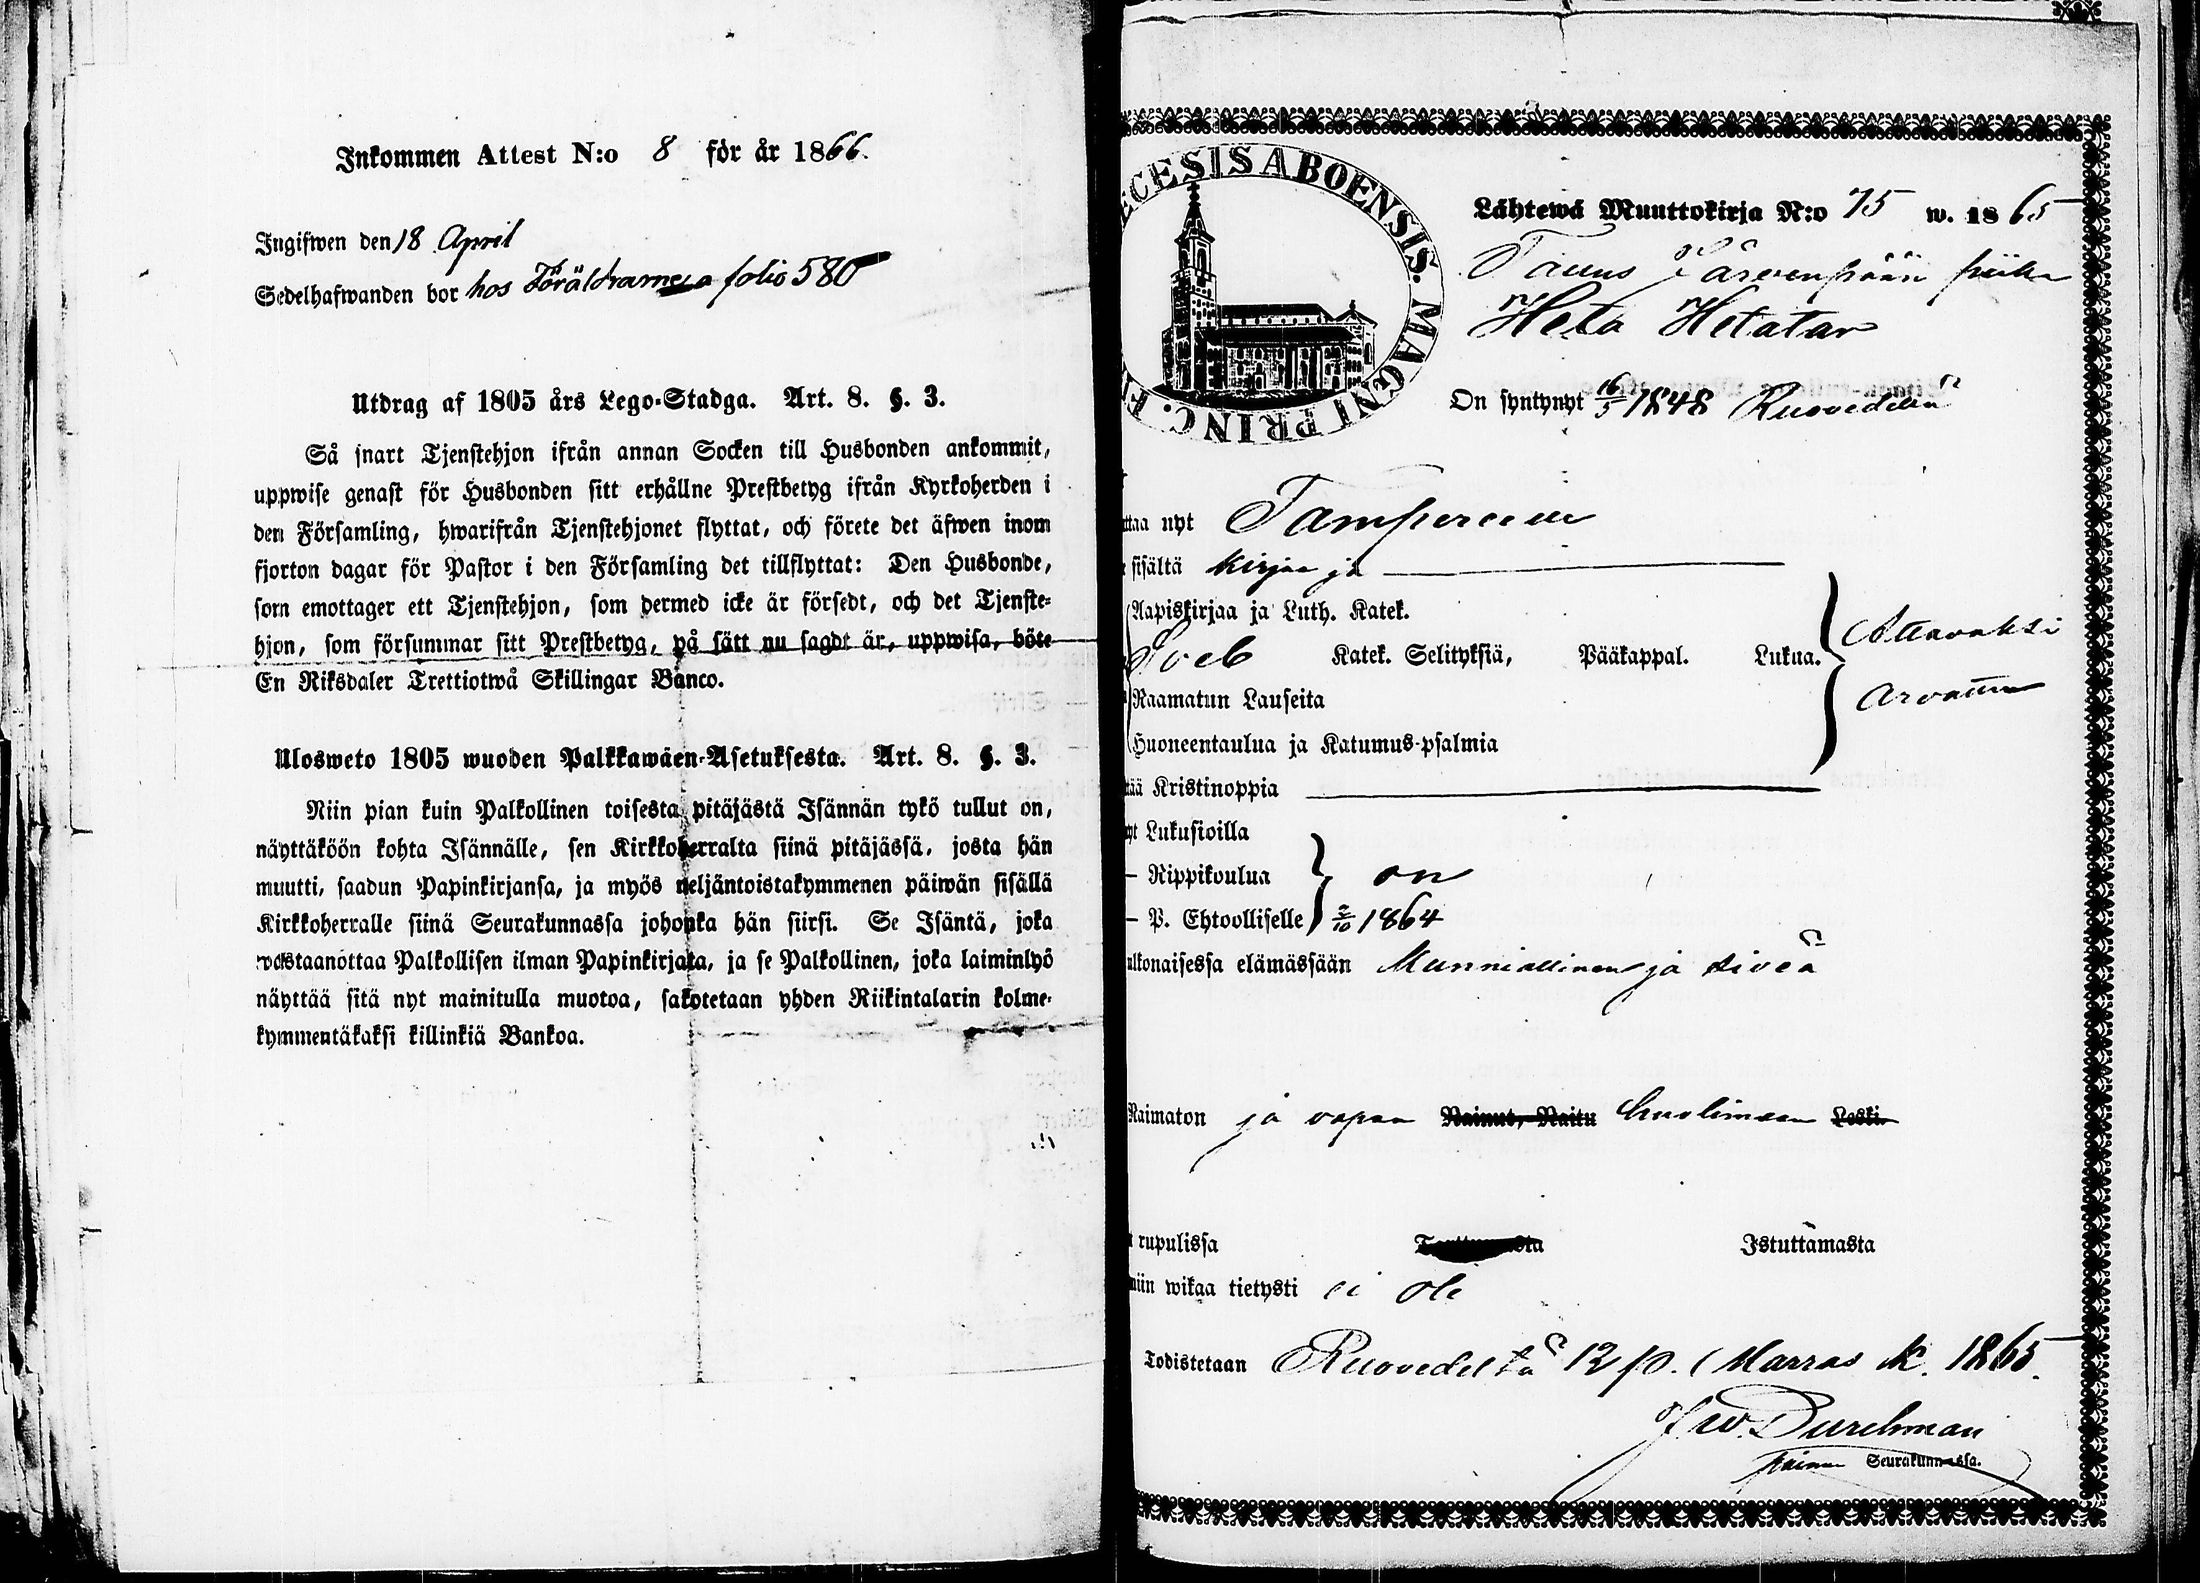 Inkommen Attest N:o 8 för år 1866.
Ingifwen den 18 April
Sedelhafwanden bor hos Föräldrarne a folio 580
Utdrag af 1805 års Lego-Stadga. Art. 8. §. 3.
Så snart Tjenstehjon ifrån annan Socken till Husbonden ankommit,
uppwise genast för Husbonden sitt erhållne Prestbetyg ifrån Kyrkoherden i
den Församling, hwarifrån Tjenstehjonet flyttat, och förete det äfwen inom
fjorton dagar för Pastor i den Församling det tillflyttat: Den Husbonde,
som emottager ett Tjenstehjon, som dermed icke är försedt, och det Tjenste-
hjon, som försummar sitt Prestbetyg, på sätt nu sagdt är, uppwisa, böte
En Riksdaler Trettiotwå Skillingar Banco.
Ulosweto 1805 wuoden Palkkawäen-Asetuksesta. Art. 8. §. 3.
Niin pian kuin Palkollinen toisesta pitäjästä Isännän tykö tullut on,
näyttäköön kohta Isännälle, sen Kirkkoherralta siinä pitäjässä, josta hän
muutti, saadun Papinkirjansa, ja myös neljäntoistakymmenen päiwän sisällä
Kirkkoherralle siinä Seurakunnassa johonka hän siirsi. Se Isäntä, joka
wastaanottaa Palkollisen ilman Papinkirjata, ja se Palkollinen, joka laiminlyö
näyttää sitä nyt mainitulla muotoa, sakotetaan yhden Riikintalarin kolme-
kymmentäkaksi killinkiä Bankoa.
ECESIS ABOENSIS. MAGNI PRINC. F
Lähtewä Muuttokirja N:o 75 w. 1865
Järvenpään piika
Heta Hetatar
On syntynyt 16/5 1848 Ruovedellä
ttaa nyt Tampereelle
sisältä kirjaa ja
Aapiskirjaa ja Luth. Katek.
Sveb Katek. Selityksiä, Pääkappal. Lukua. Attavaksi
Raamatun Lauseita arvattu
Huoneentaulua ja Katumus-psalmia
tää Kristinoppia
yt Lukusioilla
— Rippikoulua on
— P. Ehtoolliselle 2/10 1864
ulkonaisessa elämässään Kunniallinen ja siveä
Naimaton ja vapaa Nainut, Naitu huolimaan Leski
rupulissa Istuttamasta
niin wikaa tietysti ei ole
Todistetaan Ruovedeltä 12 p. Marras K. 1865.
Durchman
Seurakunnassa.